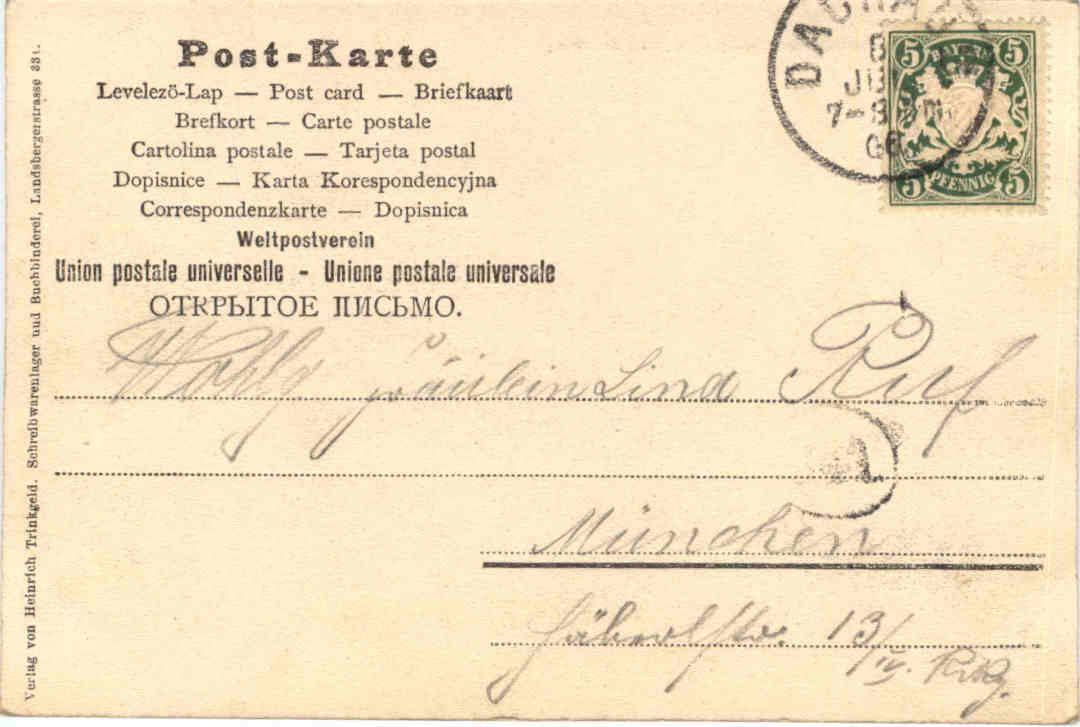 Post-Karte
Levelezö-Lap — Post card — Briefkaart
Brefkort — Carte postale
Cartolina postale — Tarjeta postal
Dopisnice — Karta Korespondencyjna
Correspondenzkarte — Dopisnica
Weltpostverein
Union postale universelle - Unione postale universale
ОТКРЫТОЕ ПИСЬМО.
DACHAU
7-8
06
5 BAYERN 5
5 PFENNIG 5
Wohlg Fräulein Lina Ruf
München
13/IV.
Verlag von Heinrich Trinkgeld. Schreibwarenlager und Buchbinderei, Landsbergerstrasse 331.